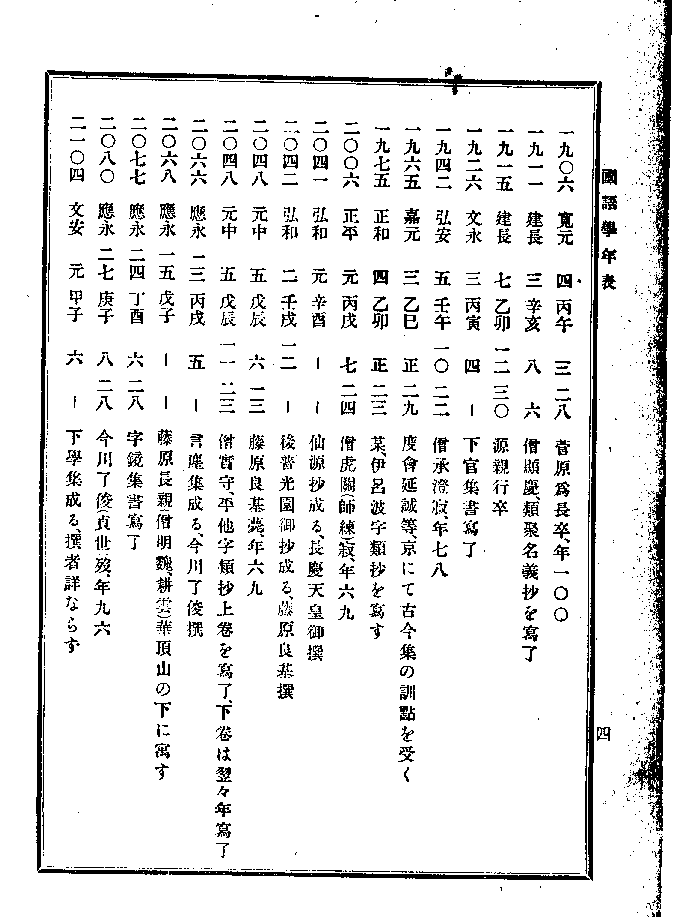 國語學年表
四
一九〇六 寬元 四 丙午 三 二八 菅原爲長卒、年一〇〇
一九一一 建長 三 辛亥 八 六 僧顯慶、類聚名義抄を寫了
一九一五 建長 七 乙卯 一二 三〇 源親行卒
一九二六 文永 三 丙寅 四 ー 下官集書寫了
一九四二 弘安 五 壬午 一〇 二二 僧承澄寂、年七八
一九六五 嘉元 三 乙巳 正 二九 度會延誠等、京にて古今集の訓點を受く
一九七五 正和 四 乙卯 正 二三 某、伊呂波字類抄を寫す
二〇〇六 正平 元 丙戌 七 二四 僧虎關(師練)寂、年六九
二〇四一 弘和 元 辛酉 ー ー 仙源抄成る、長慶天皇御撰
二〇四二 弘和 二 壬戌 一二 ー 後普光園御抄成る、藤原良基撰
二〇四八 元中 五 戊辰 六 一三 藤原良基薨、年六九
二〇四八 元中 五 戊辰 一一 二三 僧實守、平他字類抄上卷を寫了、下卷は翌々年寫了
二〇六六 應永 一三 丙戌 五 ー 言塵集成る、今川了俊撰
二〇六八 應永 一五 戊子 ー ー 藤原長親(僧明魏、耕雲)華頂山の下に寓す
二〇七七 應永 二四 丁酉 六 二八 字鏡集書寫了
二〇八〇 應永 二七 庚子 八 二八 今川了俊(貞世)歿、年九六
二一〇四 文安 元 甲子 六 ー 下學集成る、撰者詳ならす